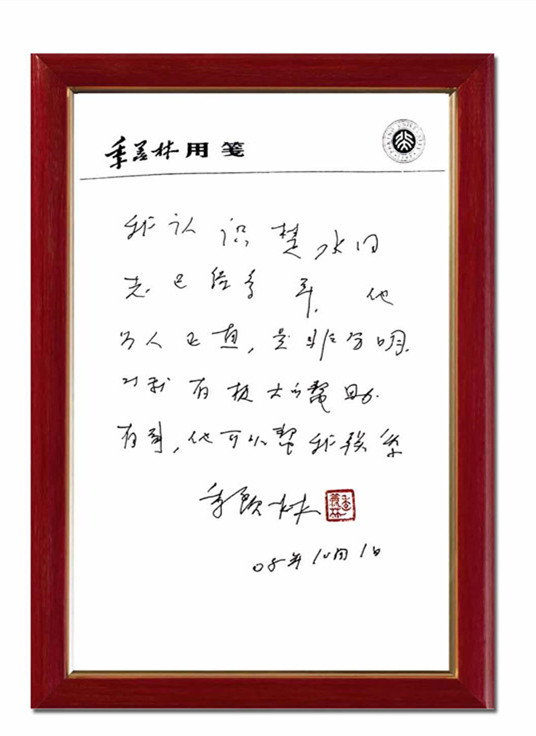 季羡林用笺
我认识楚水同
志已经多年，他
为人正直，是非分明，
对我有极大的帮助。
有事，他可以帮我联系
季羡林
05年10月1日